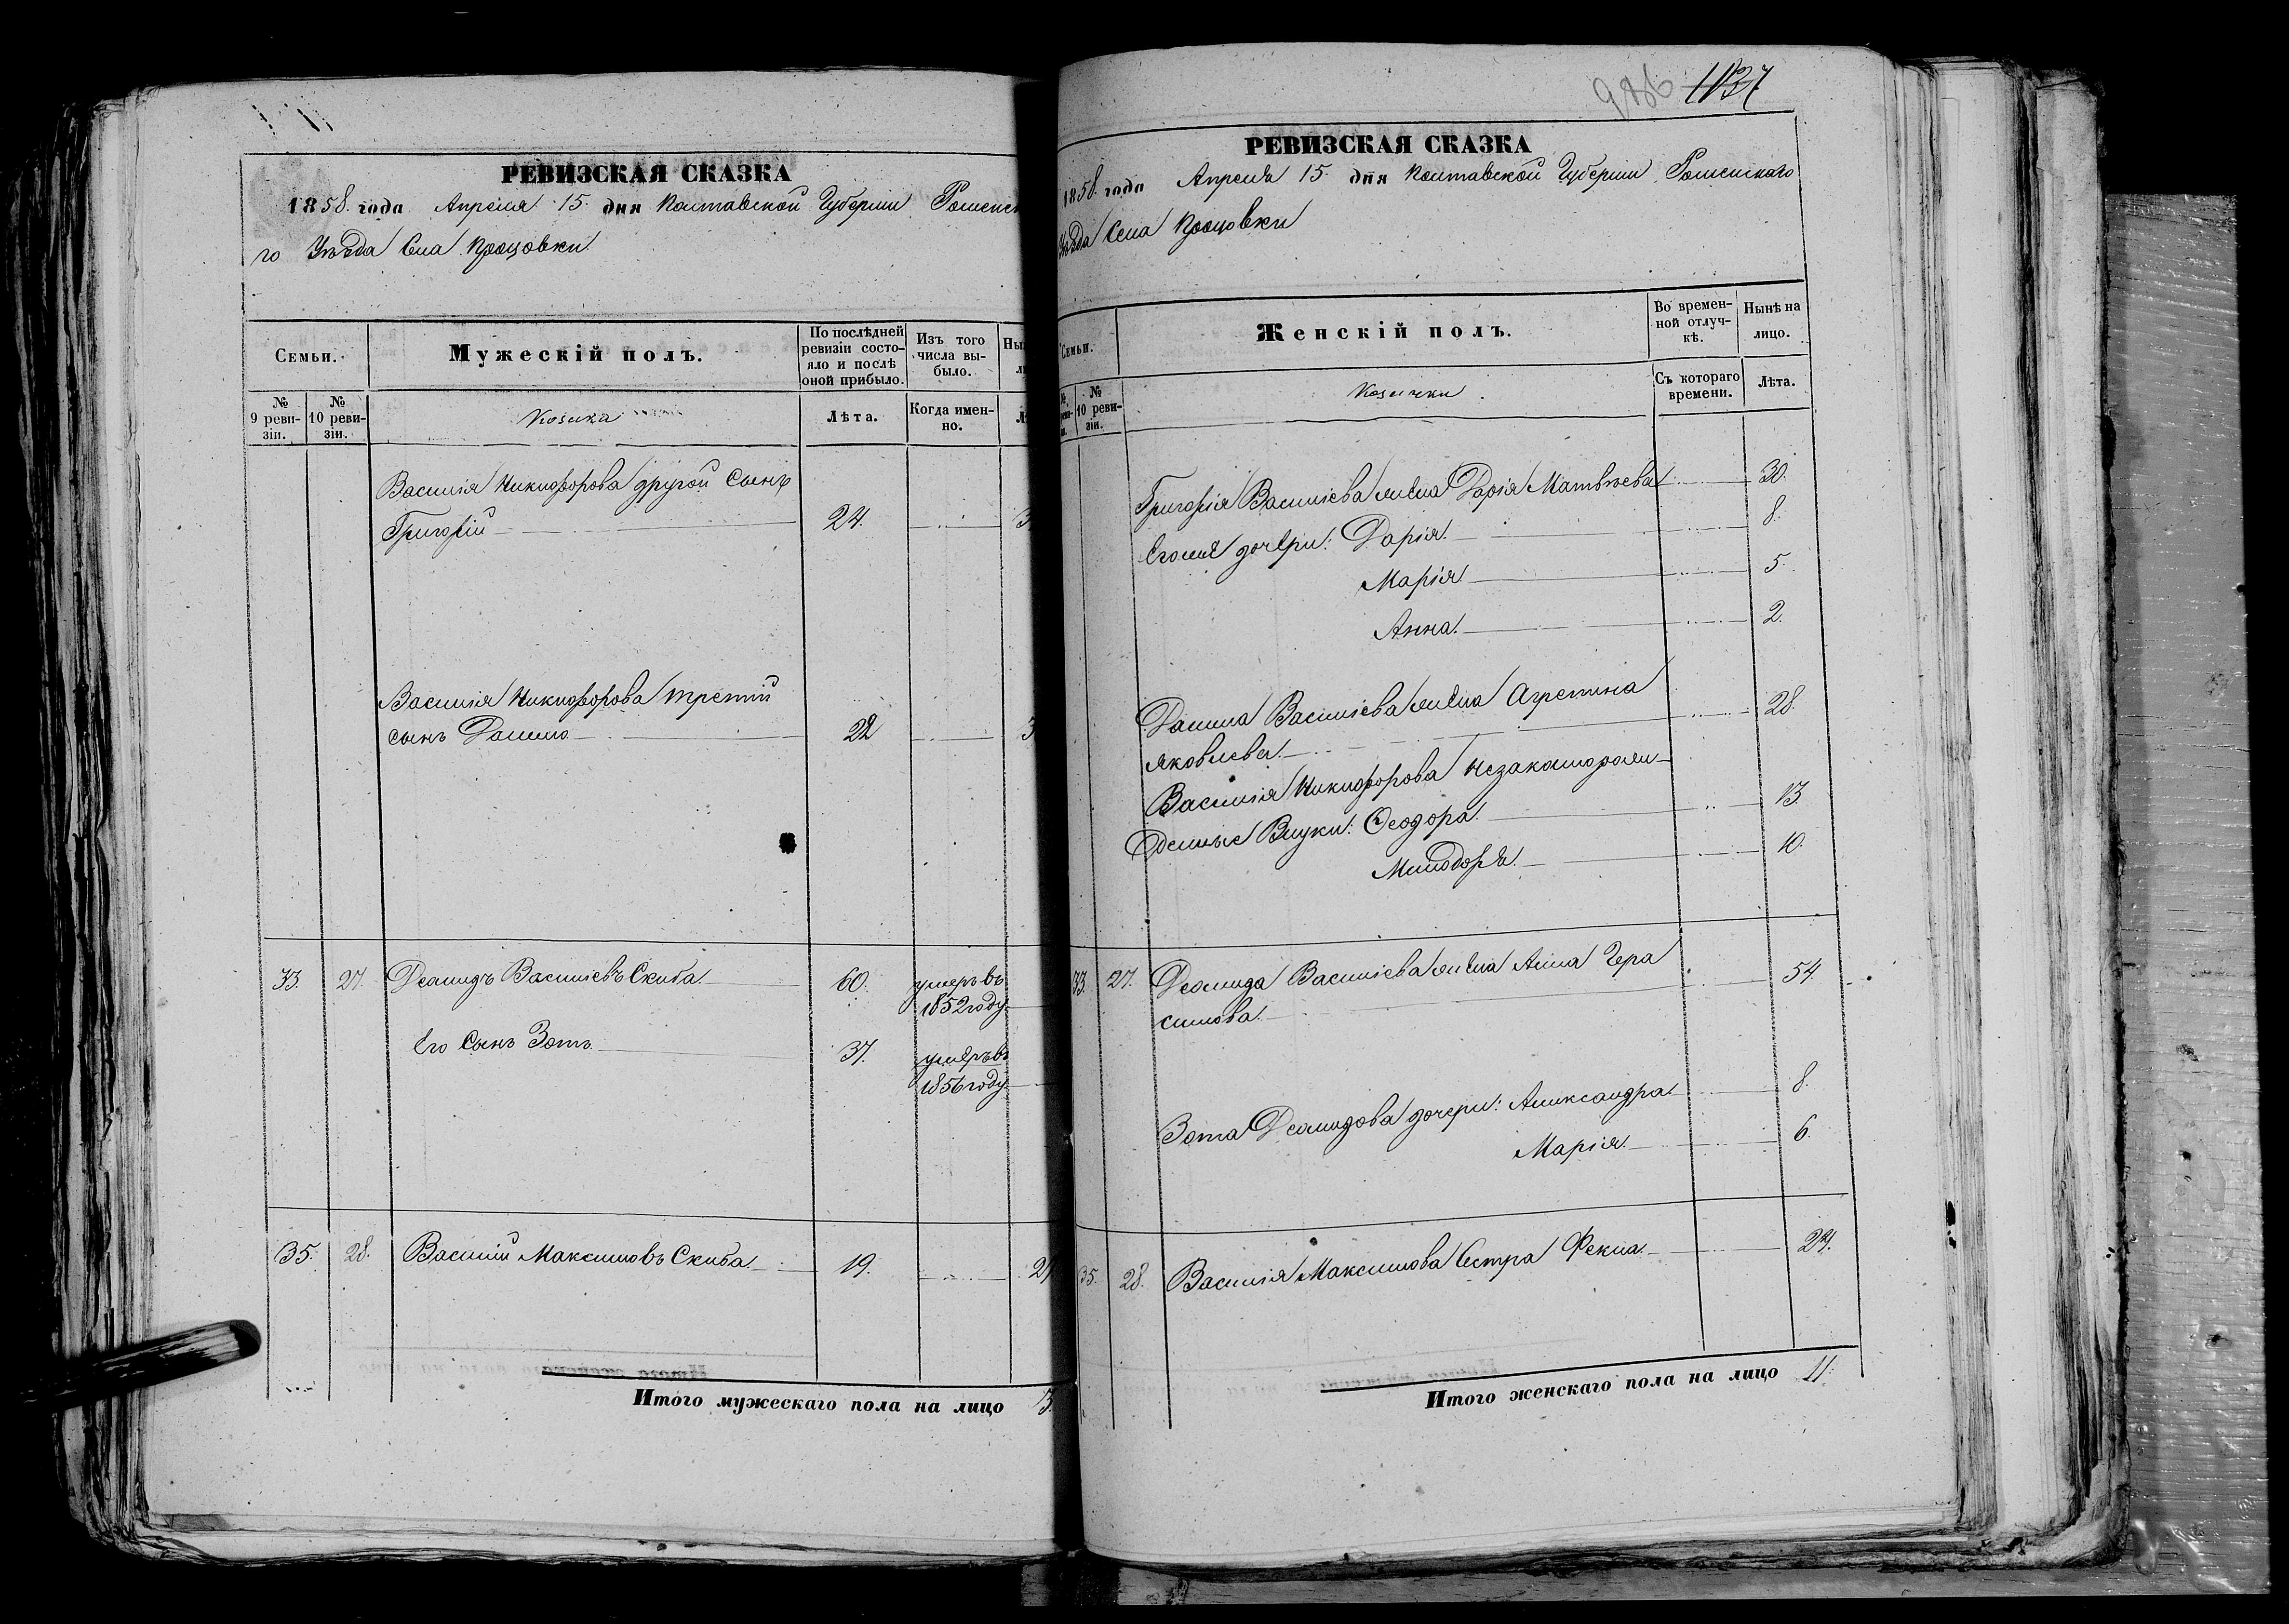 РЕВИЗСКАЯ СКАЗКА
1858. года Апреля 15. дня Полтавской Губерніи Роменск
го Уѣзда Села Процовки
Семьи.
Мужескій полъ.
По послѣдней ревизіи состояло и послѣ оной прибыло.
Изъ того числа выбыло.
№ 9 ревизіи.
№ 10 ревизіи.
Козака
Лѣта.
Когда именно.
Василія Никифорова другой Сынъ
Григорій 24.
Василія Никифорова третій
сынъ Данило 22
33. 27. Деомидъ Василіевъ Скиба 60. умеръ въ
1852 году
Его Сынъ Зотъ 37. умеръ въ
1856 году
35. 28. Василій Максимовъ Скиба 19.
Итого мужескаго пола на лицо 3.
986 1137
РЕВИЗСКАЯ СКАЗКА
1858. года Апреля 15. дня Полтавской Губерніи Роменскаго
Уѣзда Села Процовки
Семьи.
Женскій полъ.
Во временной отлучкѣ.
Нынѣ на лицо.
№ 10 ревизіи.
Козачки
Съ котораго времени.
Лѣта.
Григорія Василіева жена Дарія Матвѣева 30.
Егоже дочери: Дарія 8.
Марія 5.
Анна. 2.
Данила Василіева жена Агрепина
Яковлева 28.
Василія Никифорова незаконорож-
денные Внуки: Феодора 13.
Милодора 10.
33. 27. Деомида Василіева жена Анна Гера
симова 54.
Зота Деомидова дочери: Александра 8.
Марія 6.
35. 28. Василія Максимова Сестра Фекла 24.
Итого женскаго пола на лицо 11.